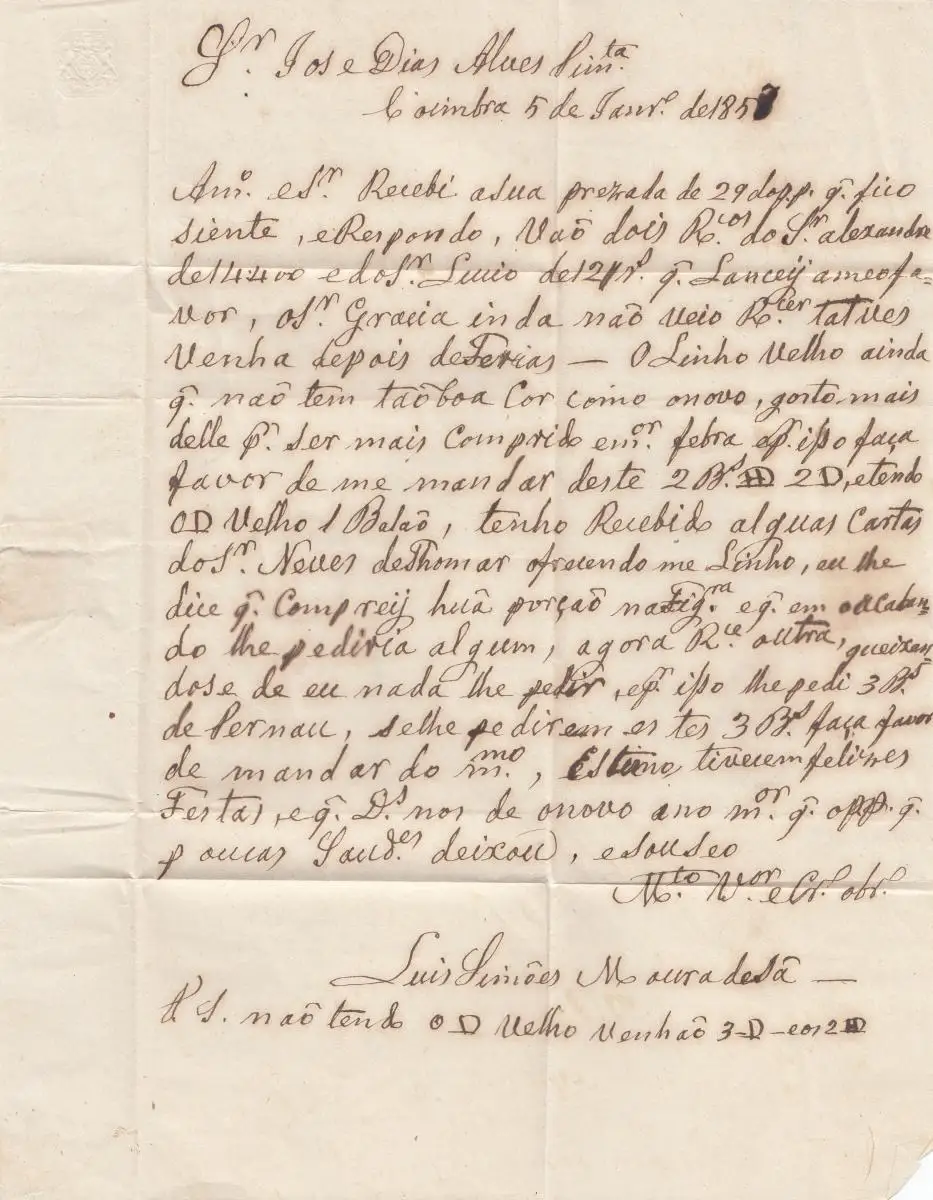 Sr. Jose Dias Alves Pimta.
Coimbra 5 de Janro. de 185
Amo. e Sr. Recebi a sua prezada de 29 do p.p. q. fico
siente, e Respondo, Vaõ dois R.cos do Sr. alexandre
de 14400 e do Sr. Lucio de q. Lanceij a meo fa-
vor, o Sr. Gracia inda naõ veio R.cer talves
Venha depois de Ferias — O Linho Velho ainda
q. naõ tem taõ boa Cor como o novo, gosto mais
delle pr. ser mais Comprido e mor. febra e pr. ißo faça
favor de me mandar deste 2 B.s D 2 D, e tendo
O D Velho 1 Balaõ, tenho Recebido alguãs Cartas
do Sr. Neves de Thomar ofrecendo me Linho, eu lhe
dice q. Compreij huã porçaõ na Figra. e q. em o acaban-
do lhe pediria algum, agora R.ce outra, queixan-
dose de eu nada lhe pedir, e pr. ißo lhe pedi 3 B.s
de Pernau, se lhe pedirem es tes 3 B.s faça favor
de mandar do mmo., Estimo tivecem felizes
Festas, e q. D.s nos de o novo ano mor. q. o p.p. q.
poucas Saudes. deixou, e sou seo
Mto. Vor. e Cr. obr.
Luis Simões Moura de Sá —
P S. naõ tendo o D Velho Venhaõ 3 D - e os 2 D